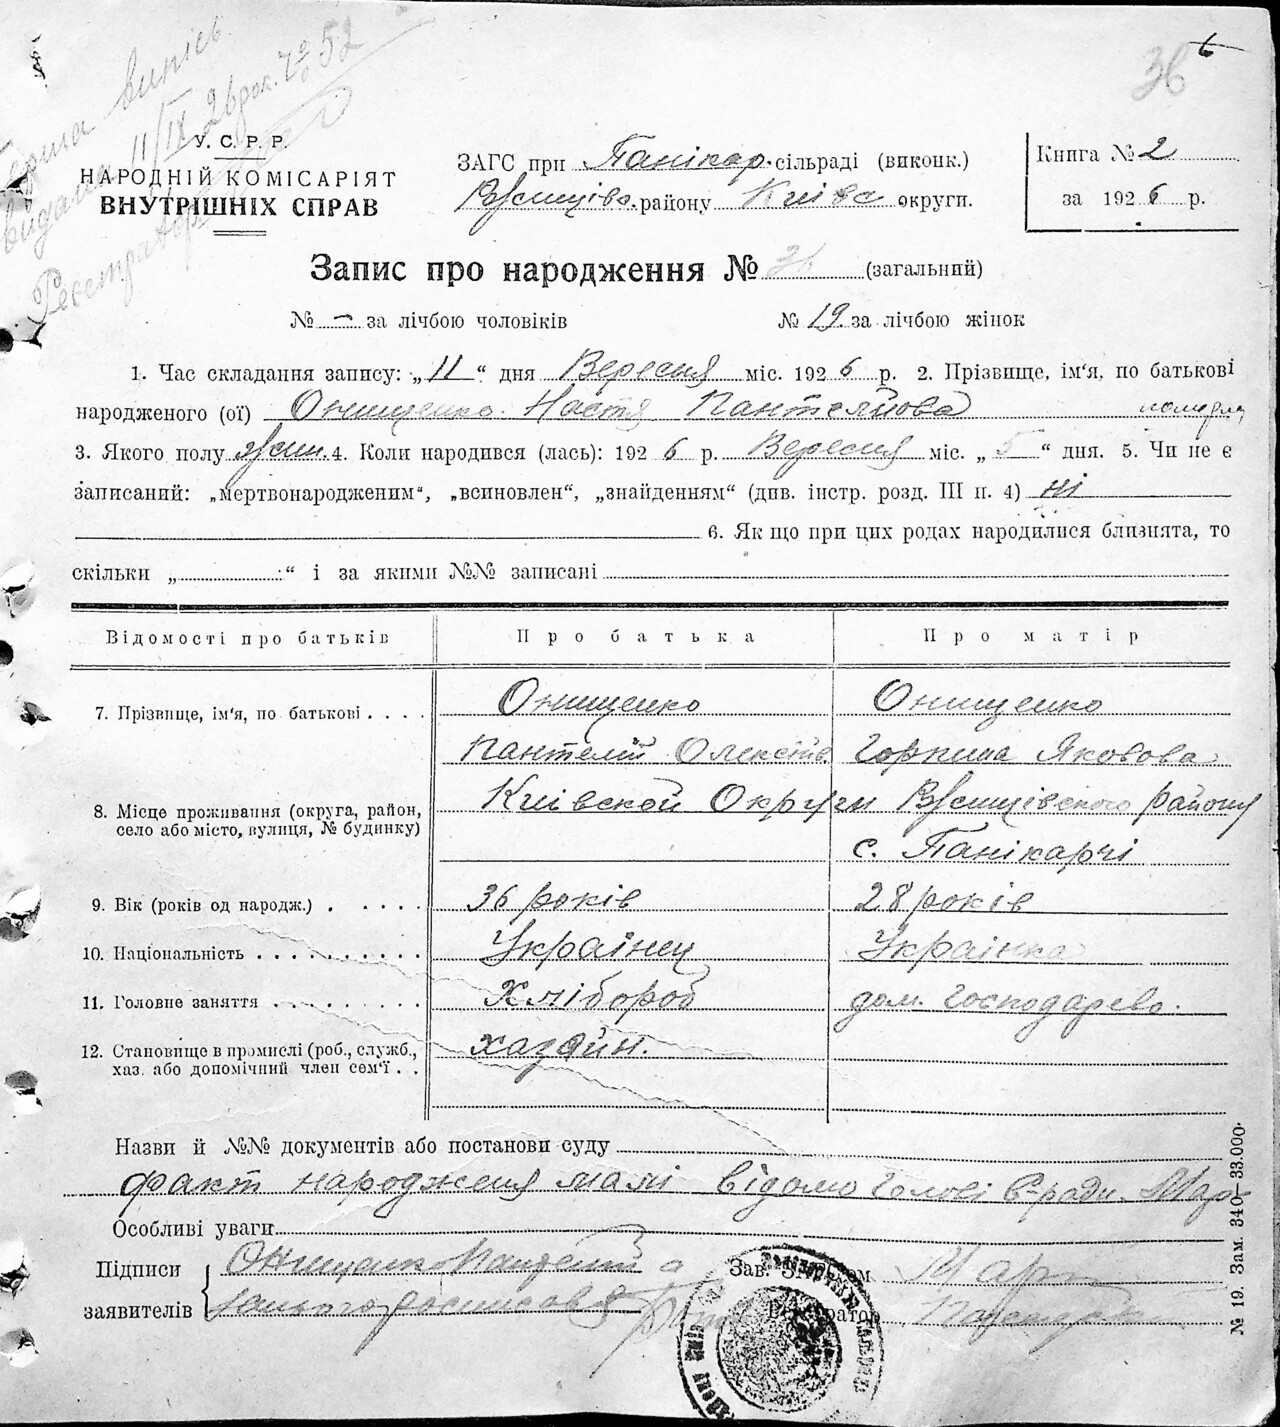 36 6
Перша випись
видана 11/IX 26 рок. № 52
Реєстратор
У. С. Р. Р.
НАРОДНІЙ КОМІСАРІЯТ
ВНУТРІШНІХ СПРАВ
ЗАГС при Панікар. сільраді (виконк.)
Ржищівс. району Київс округи.
Книга № 2
за 1926 р.
Запис про народження № 36 (загальний)
№ – за лічбою чоловіків № 19 за лічбою жінок
1. Час складання запису: „11“ дня Вересня міс. 1926 р. 2. Прізвище, ім'я, по батькові
народженого (ої) Онищенко Настя Пантелійова
3. Якого полу жін. 4. Коли народився (лась): 1926 р. Вересня міс. „5“ дня. 5. Чи не є
записаний: „мертвонародженим“, „всиновлен“, „знайденням“ (див. інстр. розд. III п. 4) ні
6. Як що при цих родах народилися близнята, то
скільки „ “ і за якими №№ записані
Відомості про батьків Про батька Про матір
7. Прізвище, ім'я, по батькові . . . . Онищенко Онищенко
Пантелій Олексіїв Горпина Яковова
8. Місце проживання (округа, район, Київской Округи Ржищівского району
село або місто, вулиця, № будинку) с. Панікарчі
9. Вік (років од народж.) . . . . . 36 років 28 років
10. Національність . . . . . . . . . . Українец Українка
11. Головне заняття . . . . . . . . . Хлібороб дом. господарево.
12. Становище в промислі (роб., служб., хазяїн.
хаз. або допомічний член сем'ї . .
Назви й №№ документів або постанови суду
факт народженя малі відомо Голові С-ради
Особливі уваги
Підписи Онищенко Пантелій а Зав. ЗАГС'ом Мар
заявителів Реєстратор
№ 19. Зам. 340—33.000.